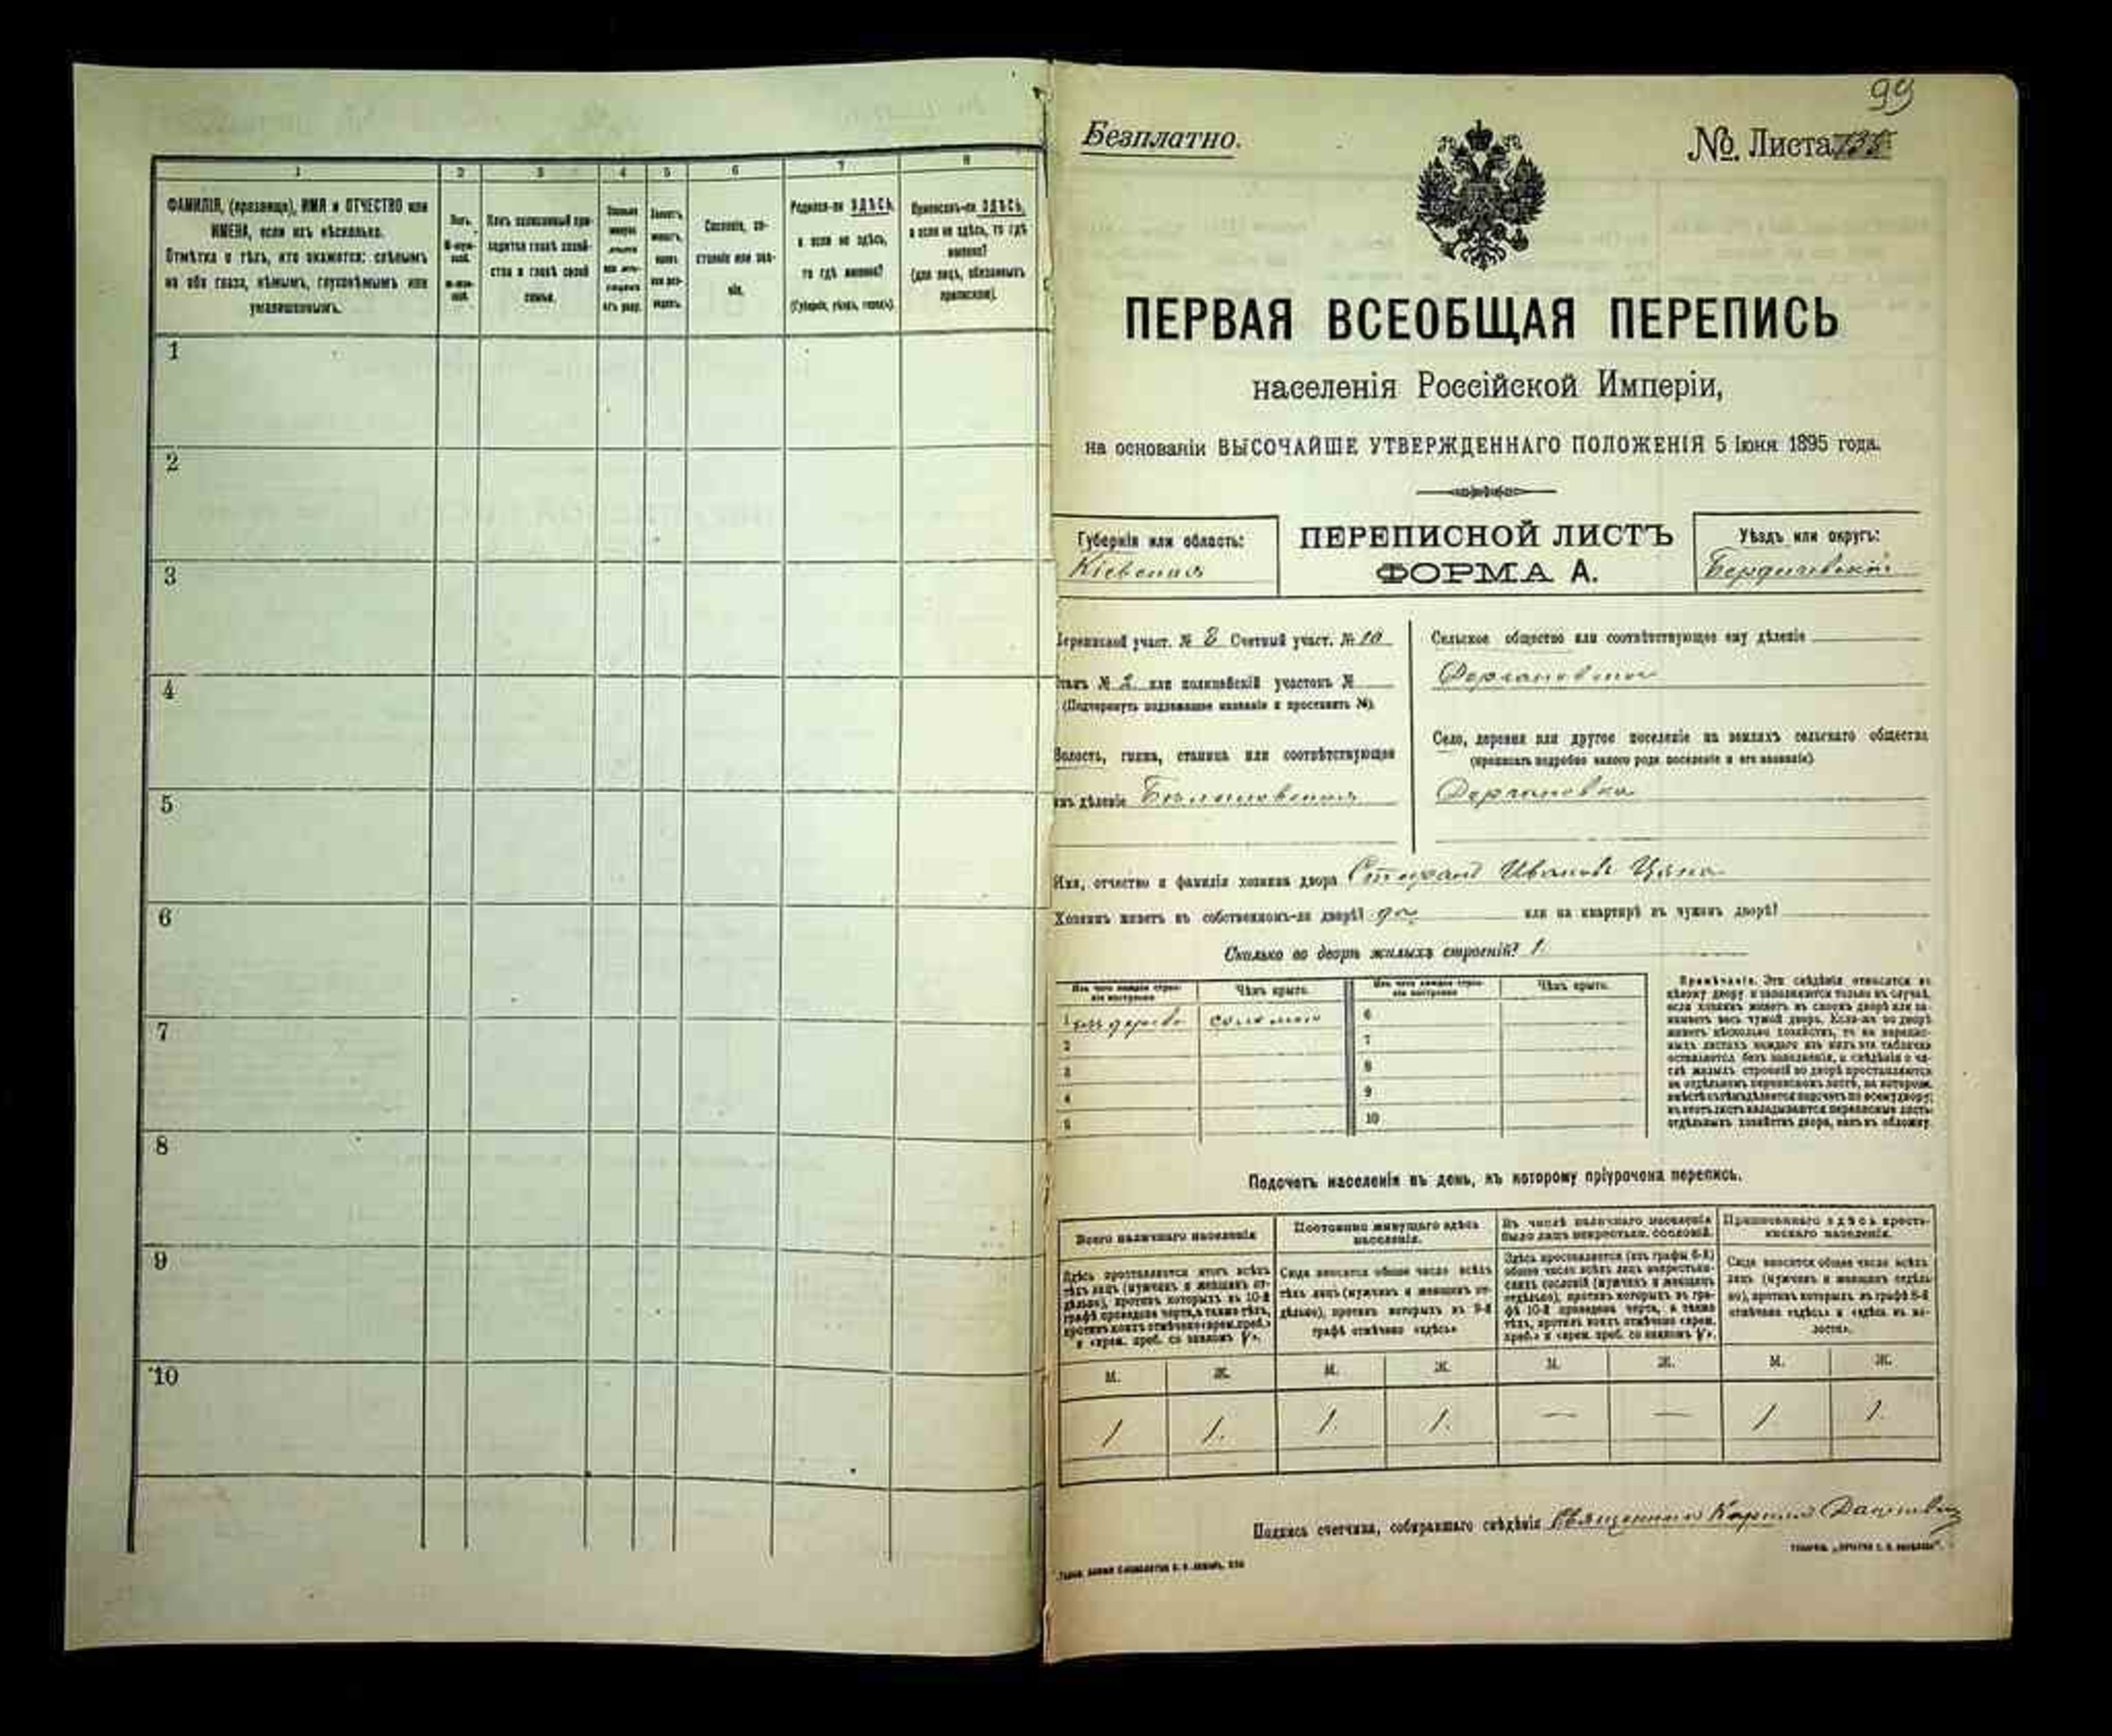 1 2 3 4 5 6 7 8
ФАМИЛІЯ, (прозвище), ИМЯ и ОТЧЕСТВО или
ИМЕНА, если ихъ нѣсколько.
Отмѣтка о тѣхъ, кто окажется: слѣпымъ
на оба глаза, нѣмымъ, глухонѣмымъ или
умалишеннымъ.
Полъ.
Какъ записанный при-
ходится главѣ хозяй-
ства и главѣ своей
семьи.
Сословіе, со-
стояніе или зва-
ніе.
Родился-ли ЗДѢСЬ,
а если не здѣсь,
то гдѣ именно?
(Губернія, уѣздъ, городъ).
Приписанъ-ли ЗДѢСЬ,
а если не здѣсь, то гдѣ
именно?
(для лицъ, обязанныхъ
припискою).
1
2
3
4
5
6
7
8
9
10
99
Безплатно.
№ Листа
ПЕРВАЯ ВСЕОБЩАЯ ПЕРЕПИСЬ
населенія Россійской Имперіи,
на основаніи ВЫСОЧАЙШЕ УТВЕРЖДЕННАГО ПОЛОЖЕНІЯ 5 Іюня 1895 года.
Губернія или область:
Кіевская
ПЕРЕПИСНОЙ ЛИСТЪ
ФОРМА А.
Уѣздъ или округъ:
Бердичевскій
Переписной участ. № Счетный участ. № 10
Станъ № 2 или полицейскій участокъ №
(Подчеркнуть подлежащее названіе и проставить №).
Волость, гмина, станица или соотвѣтствующее
имъ дѣленіе
Сельское общество или соотвѣтствующее ему дѣленіе
Село, деревня или другое поселеніе на земляхъ сельскаго общества
(прописать подробно какого рода поселеніе и его названіе).
Имя, отчество и фамилія хозяина двора Иванов
Хозяинъ живетъ въ собственномъ-ли дворѣ? да или на квартирѣ въ чужомъ дворѣ?
Сколько во дворѣ жилыхъ строеній? 1.
Изъ чего каждое строе-
ніе построено
Чѣмъ крыто.
Изъ чего каждое строе-
ніе построено
Чѣмъ крыто.
1 изъ дерева соломою 6
2 7
3 8
4 9
5 10
Примѣчаніе. Эти свѣдѣнія относятся къ
цѣлому двору и заполняются только въ случаѣ,
если хозяинъ живетъ въ своемъ дворѣ или за-
нимаетъ весь чужой дворъ. Если-же во дворѣ
живетъ нѣсколько хозяйствъ, то на перепис-
ныхъ листахъ каждаго изъ нихъ эта табличка
оставляется безъ заполненія, а свѣдѣнія о чи-
слѣ жилыхъ строеній во дворѣ проставляются
на отдѣльномъ переписномъ листѣ, на которомъ
вмѣстѣ съ тѣмъ дѣлается подсчетъ по всему двору;
въ этотъ листъ вкладываются переписные листы
отдѣльныхъ хозяйствъ двора, какъ въ обложку.
Подсчетъ населенія въ день, къ которому пріурочена перепись.
Всего наличнаго населенія
Здѣсь проставляется итогъ всѣхъ
тѣхъ лицъ (мужчинъ и женщинъ от-
дѣльно), противъ которыхъ въ 10-й
графѣ проведена черта, а также тѣхъ,
противъ коихъ отмѣчено «врем. преб.»
и «врем. преб. со знакомъ V».
Постоянно живущаго здѣсь
населенія.
Сюда вносится общее число всѣхъ
тѣхъ лицъ (мужчинъ и женщинъ от-
дѣльно), противъ которыхъ въ 9-й
графѣ отмѣчено «здѣсь»
Въ числѣ наличнаго населенія
было лицъ некрестьян. сословій.
Здѣсь проставляется (изъ графы 6-й)
общее число всѣхъ лицъ некрестьян-
скихъ сословій (мужчинъ и женщинъ
отдѣльно), противъ которыхъ въ гра-
фѣ 10-й проведена черта, а также
тѣхъ, противъ коихъ отмѣчено «врем.
преб.» и «врем. преб. со знакомъ V».
Приписаннаго здѣсь кресть-
янскаго населенія.
Сюда вносится общее число всѣхъ
лицъ (мужчинъ и женщинъ отдѣль-
но), противъ которыхъ въ графѣ 8-й
отмѣчено «здѣсь» и «здѣсь въ во-
лости».
М. Ж. М. Ж. М. Ж. М. Ж.
1 1. 1. 1. — — 1 1.
Подпись счетчика, собиравшаго свѣдѣнія Священникъ